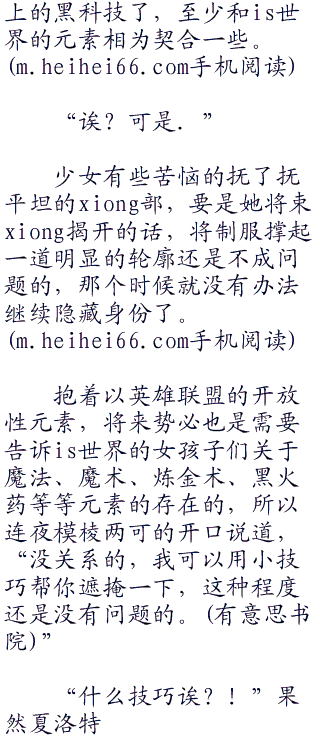 上的黑科技了，至少和is世
界的元素相为契合一些。
(m.heihei66.com手机阅读)
“诶？可是．”
少女有些苦恼的抚了抚
平坦的xiong部，要是她将束
xiong揭开的话，将制服撑起
一道明显的轮廓还是不成问
题的，那个时候就没有办法
继续隐藏身份了。
(m.heihei66.com手机阅读)
抱着以英雄联盟的开放
性元素，将来势必也是需要
告诉is世界的女孩子们关于
魔法、魔术、炼金术、黑火
药等等元素的存在的，所以
连夜模棱两可的开口说道，
“没关系的，我可以用小技
巧帮你遮掩一下，这种程度
还是没有问题的。(有意思书
院)”
“什么技巧诶？！”果
然夏洛特